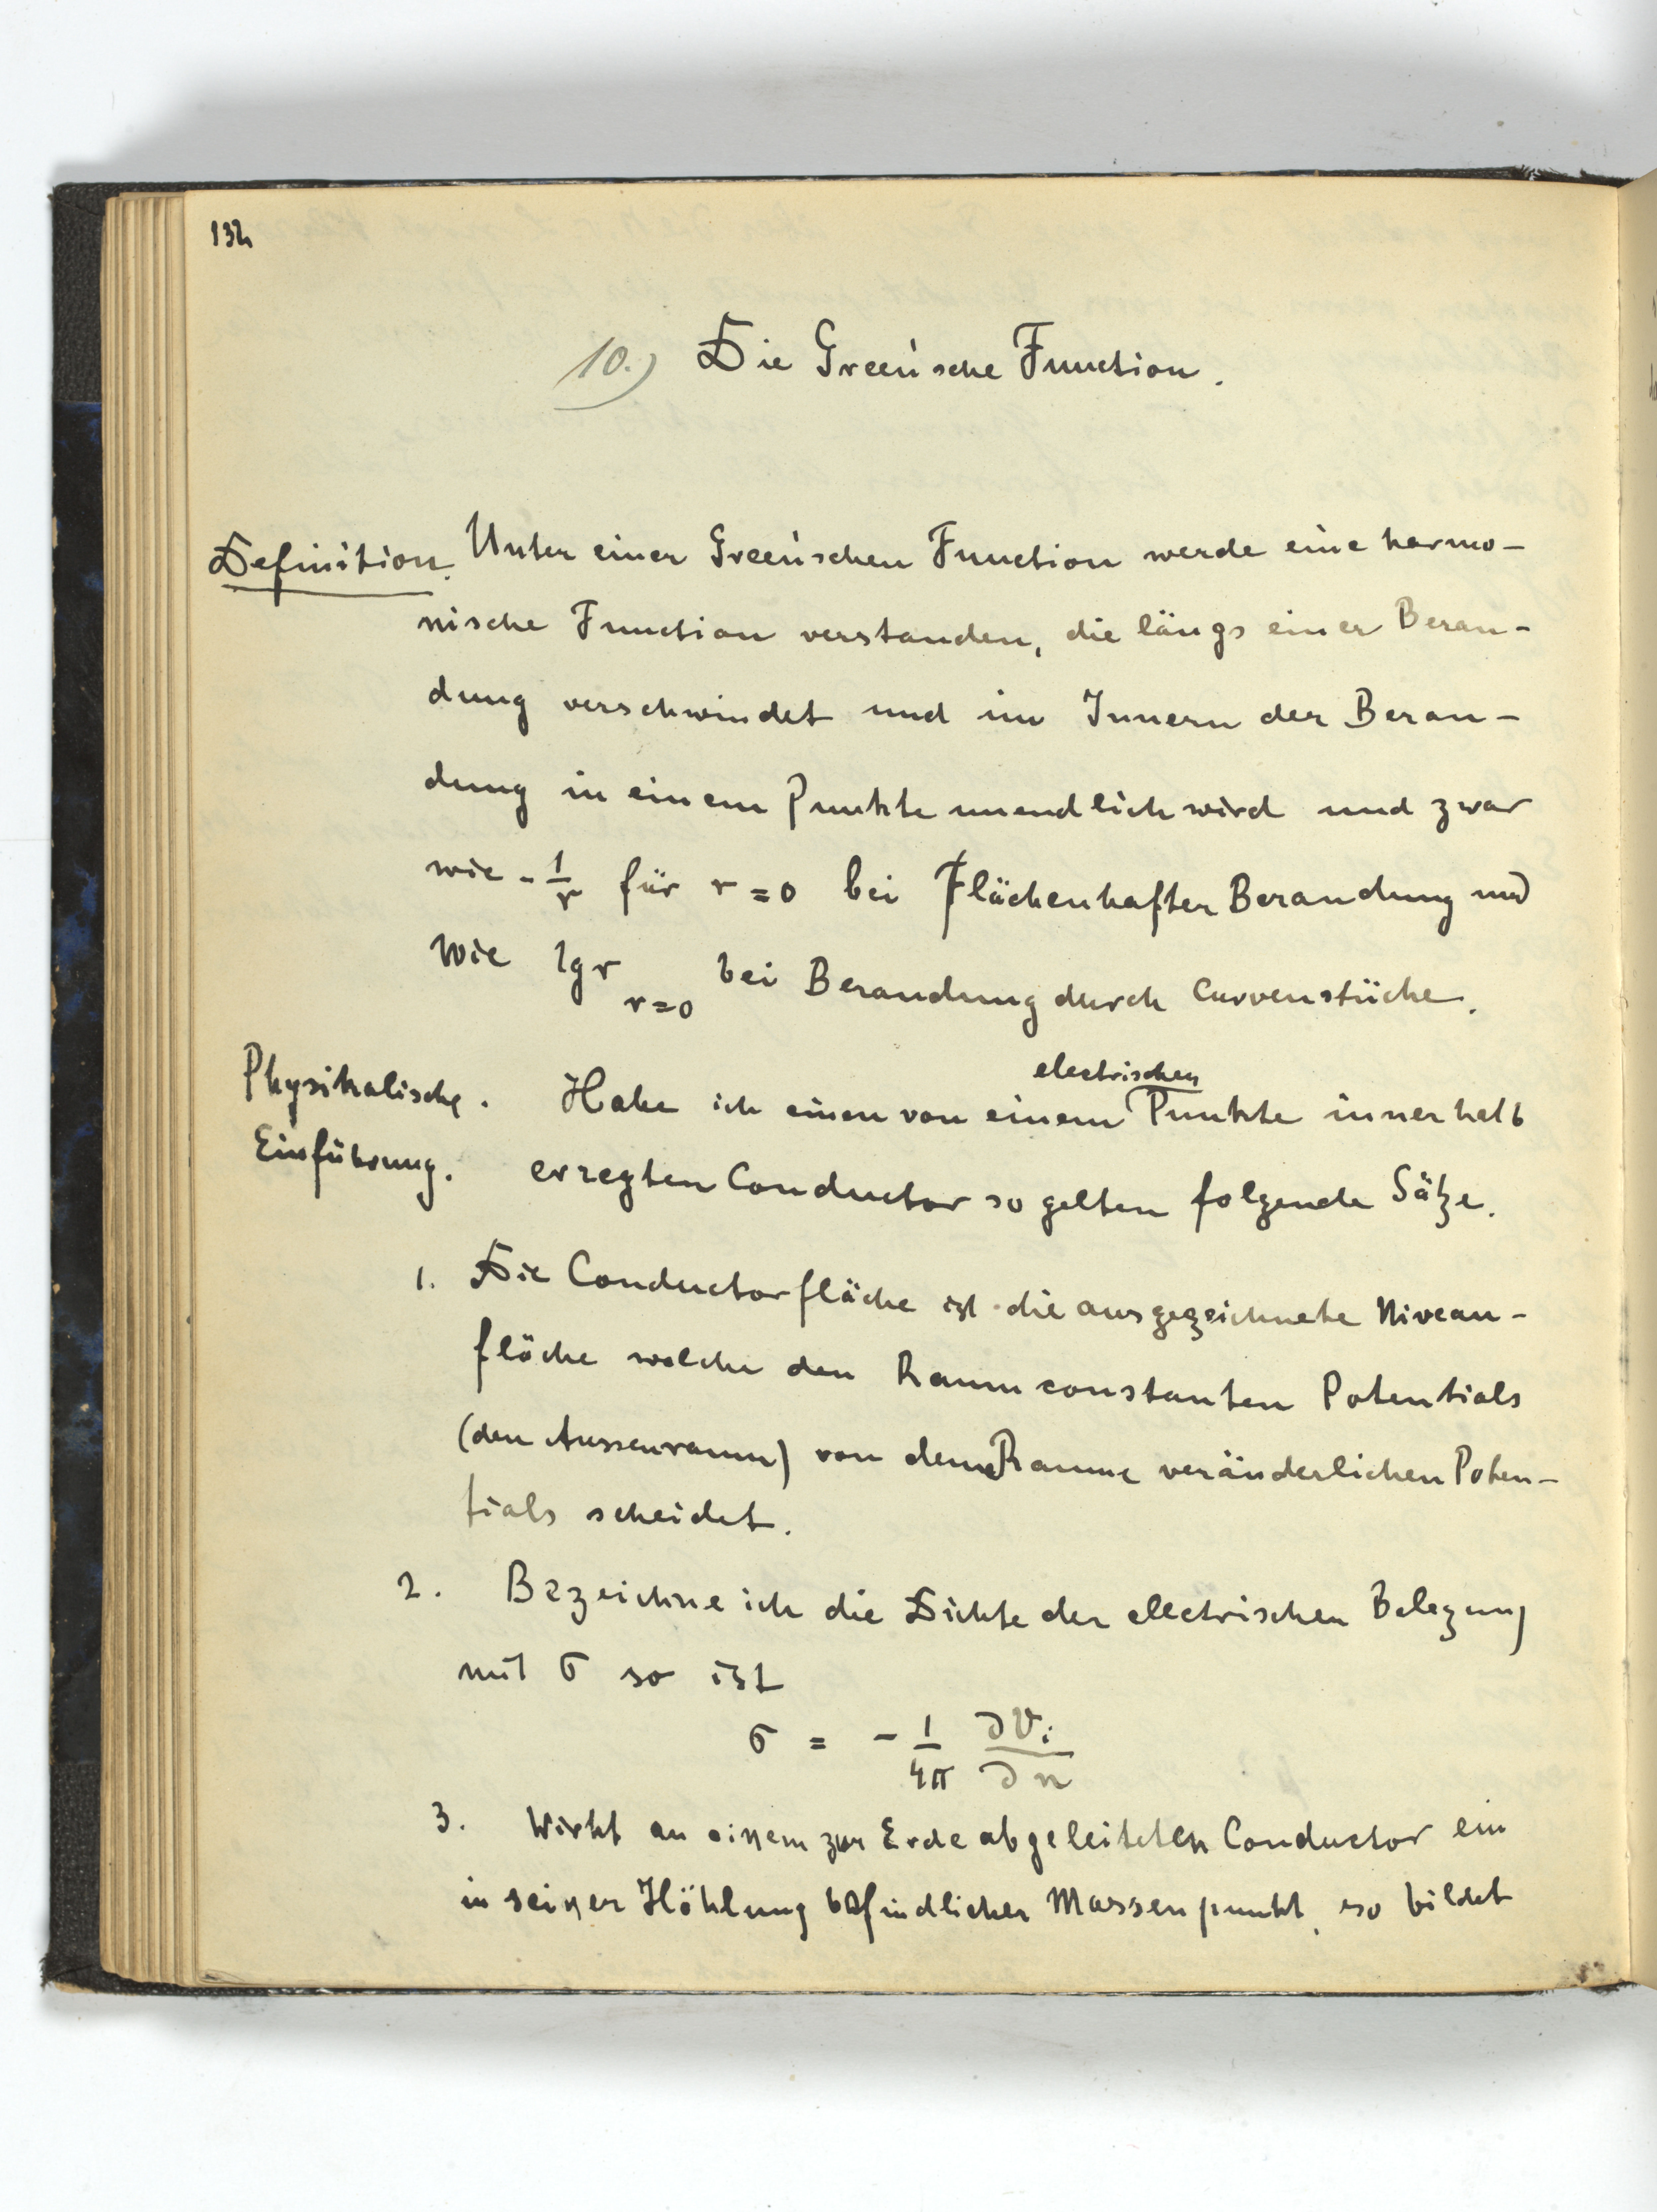 132
10.) Die Green'sche Function.
Definition. Unter einer Green'schen Function werde eine harmo-
nische Function verstanden, die längs einer Beran-
dung verschwindet und im Innern der Beran-
dung in einem Punkte unendlich wird und zwar
wie - 1/r für r = 0 bei flächenhafter Berandung und
wie lg r r=0 bei Berandung durch Curvenstücke.
electrischen
Physikalische. Habe ich einen von einem Punkte innerhalb
Einführung. erregten Conductor so gelten folgende Sätze.
1. Die Conductorfläche ist die ausgezeichnete Niveau-
fläche welche den Raum constanten Potentials
(den Aussenraum) von dem Raume veränderlichen Poten-
tials scheidet.
2. Bezeichne ich die Dichte der electrischen Belegung
mit σ so ist
σ = - 1/4π ∂Vi/∂n
3. Wirkt an einem zur Erde abgeleiteten Conductor ein
in seiner Höhlung befindlicher Massenpunkt, so bildet